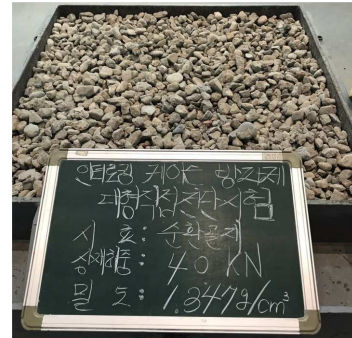 인터로킹 케이슨 방파제
대형직접전단시험
시 료: 순환골재
상재하중: 40 KN
밀 도: 1.347g/cm³